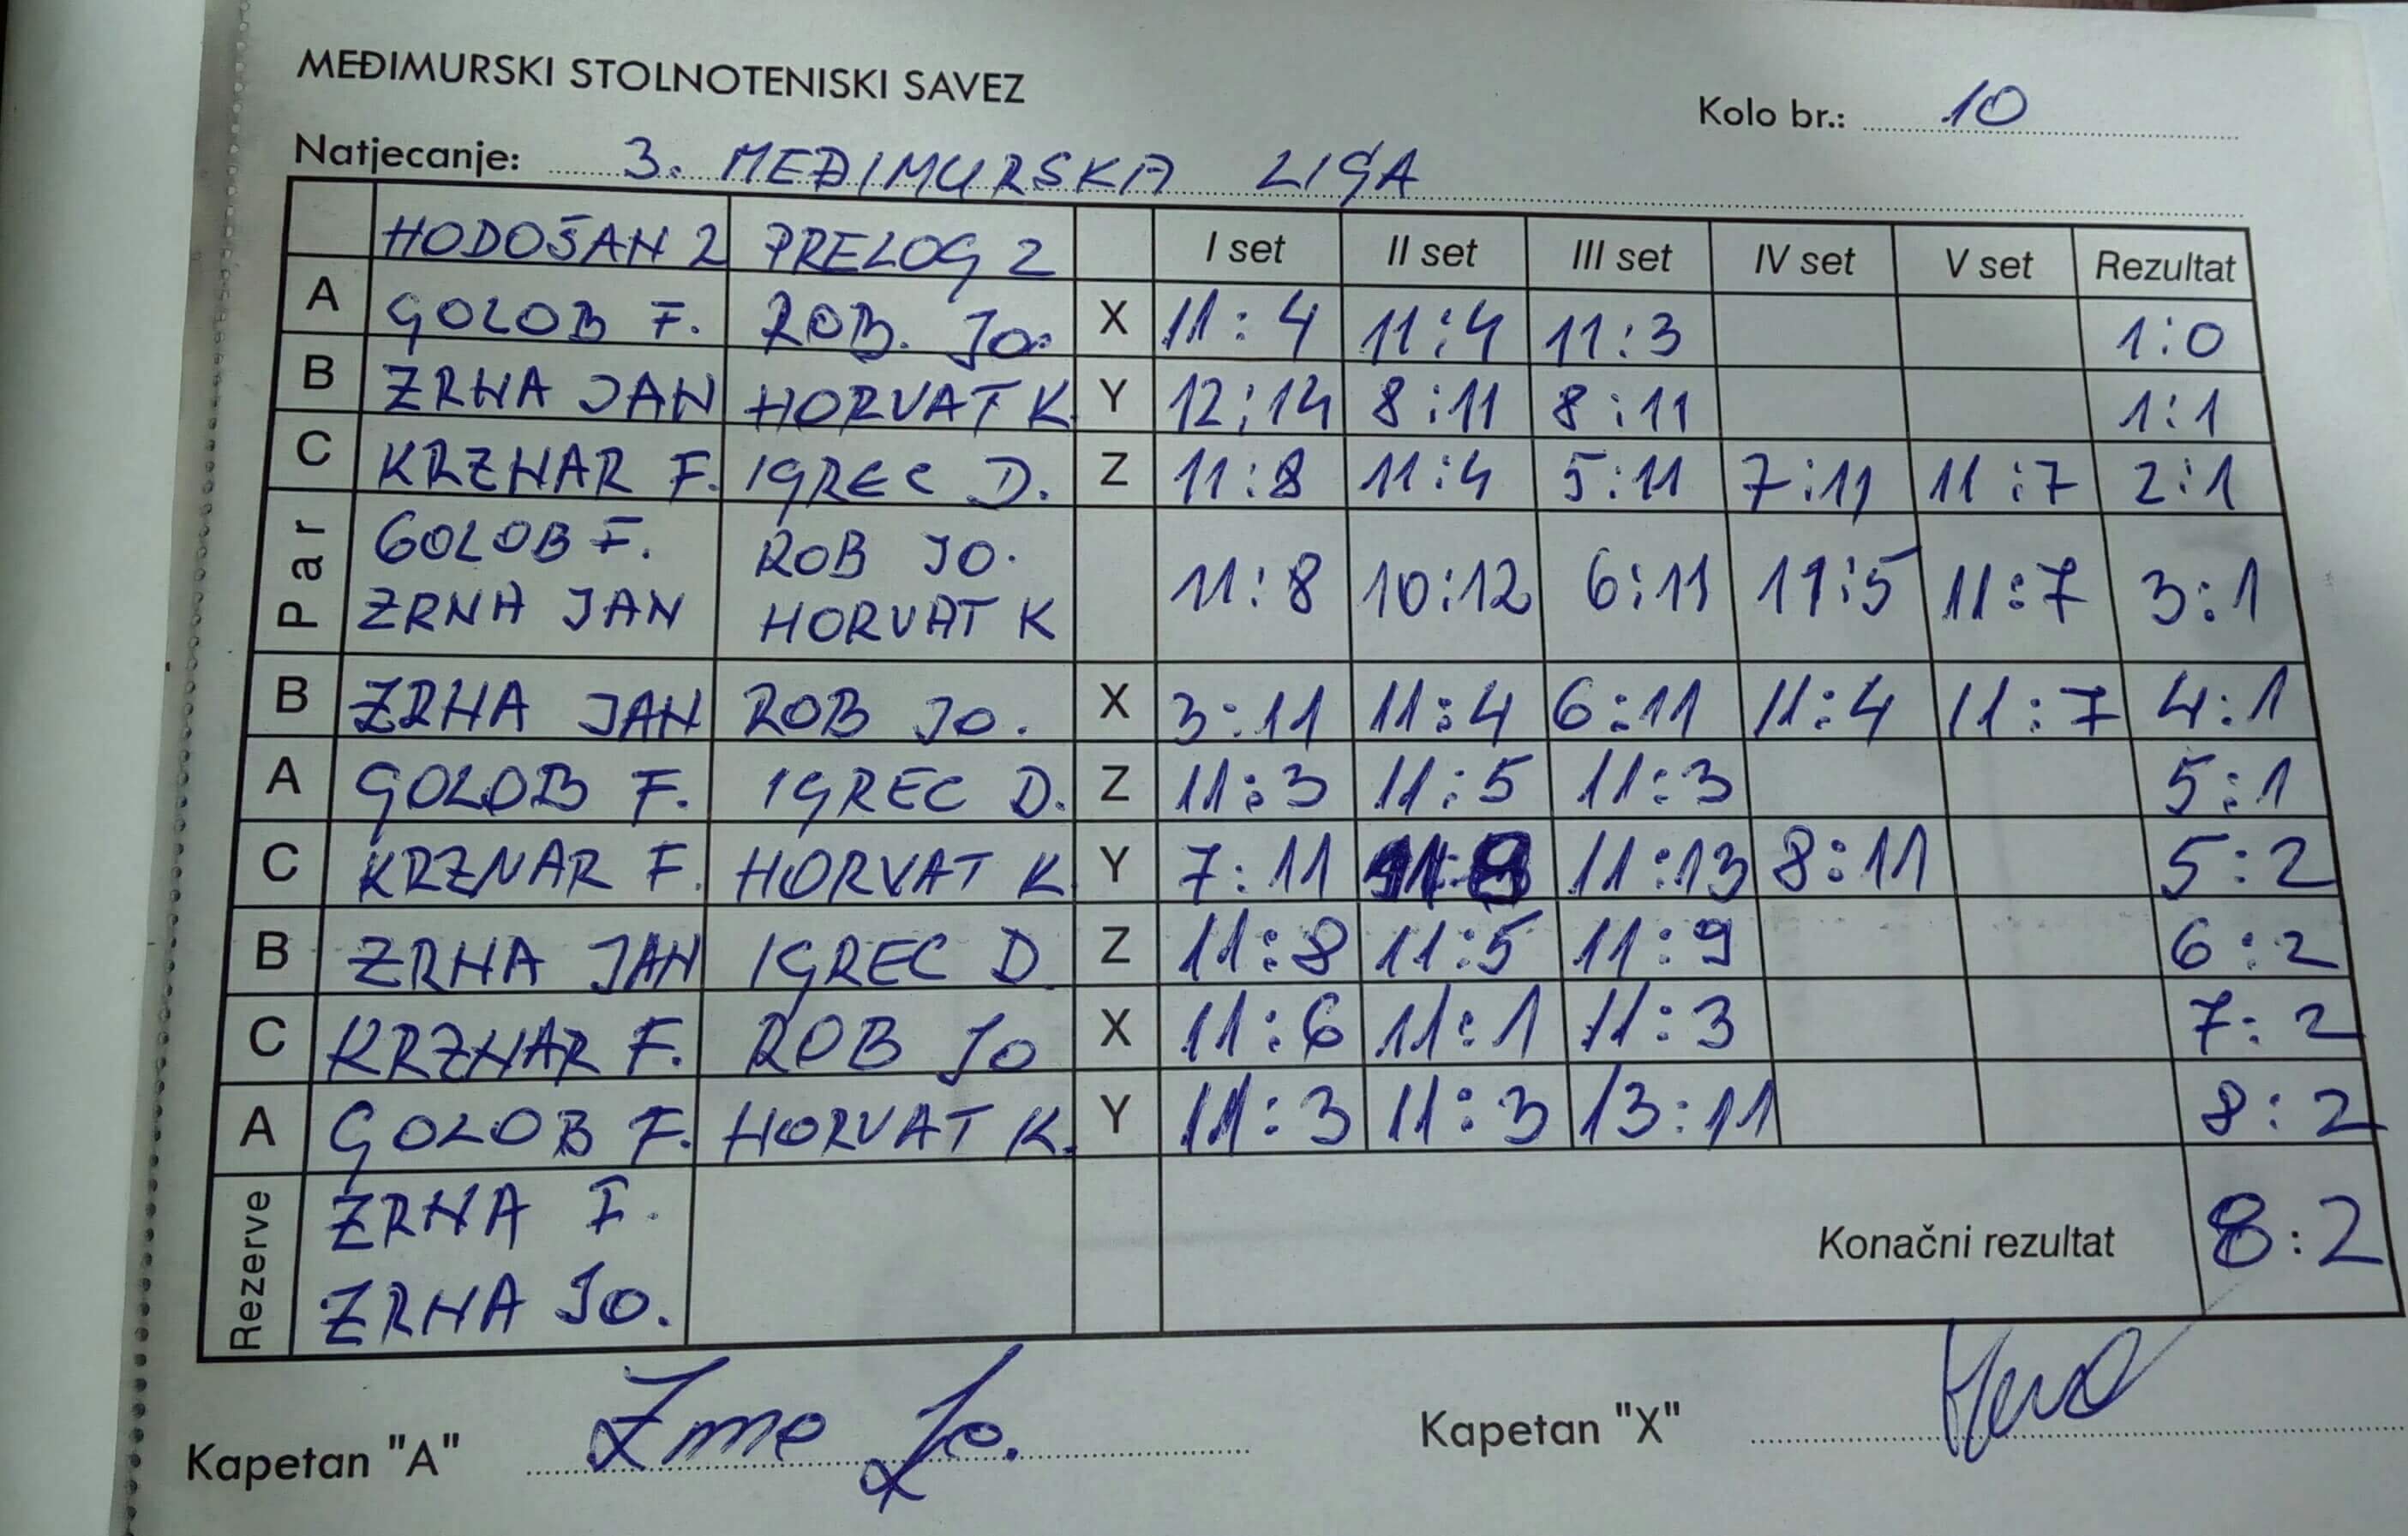 MEĐIMURSKI STOLNOTENISKI SAVEZ
Kolo br.: 10
Natjecanje: 3. MEĐIMURSKA LIGA
HODOŠAN 2 PRELOG 2 I set II set III set IV set V set Rezultat
A GOLOB F. ROB. JO. X 11:4 11:4 11:3 1:0
B ZRNA JAN HORVAT K. Y 12:14 8:11 8:11 1:1
C KRZNAR F. IGREC D. Z 11:8 11:4 5:11 7:11 11:7 2:1
Par GOLOB F. ROB JO. 11:8 10:12 6:11 11:5 11:7 3:1
ZRNA JAN HORVAT K
B ZRNA JAN ROB JO. X 3:11 11:4 6:11 11:4 11:7 4:1
A GOLOB F. IGREC D. Z 11:3 11:5 11:3 5:1
C KRZNAR F. HORVAT K Y 7:11 11:13 8:11 5:2
B ZRNA JAN IGREC D Z 11:8 11:5 11:9 6:2
C KRZNAR F. ROB JO X 11:6 11:1 11:3 7:2
A GOLOB F. HORVAT K. Y 11:3 11:3 13:11 8:2
Rezerve ZRNA F.
ZRNA JO.
Konačni rezultat 8:2
Kapetan "A" Kapetan "X"